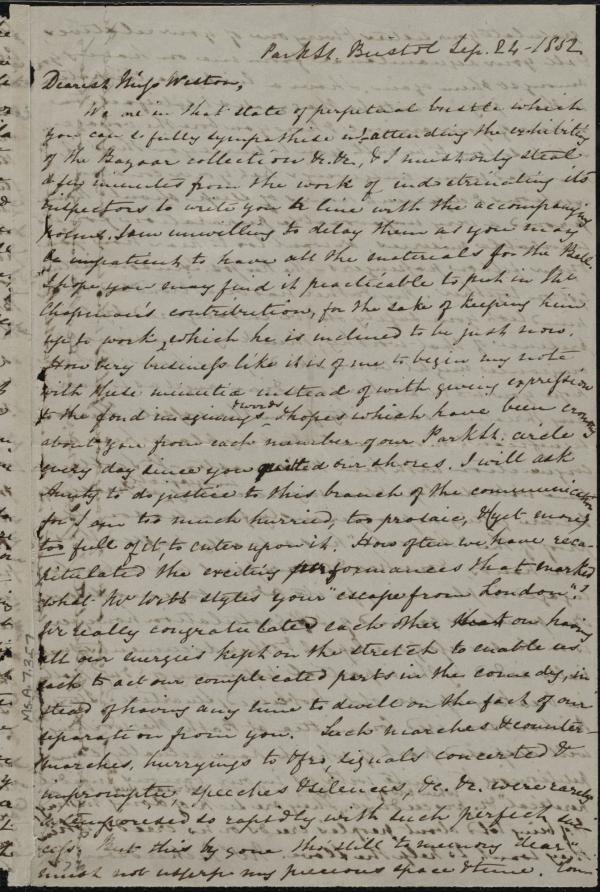 Park St. Bristol Sep. 24 - 1852
Dearest Miss Weston,
We are in that state of perpetual bustle which
you can so fully sympathise in, attending the exhibiting
of the Bazaar collection &c. &c, & I must only steal
a few minutes from the work of indoctrinating its
inspectors to write you a line with the accompanying
. I am unwilling to delay them as you may
be impatient to have all the materials for the Bell.
I hope you may find it practicable to put in the
Chapman's contribution, for the sake of keeping him
up to work, which he is inclined to be just now.
How very business like it is of me to begin my note
with these minutiae instead of with giving expression
to the fond imaginings & words & hopes which have been crowding
about you from each member of our Park St. circle
every day since you quitted our shores. I will ask
to do justice to this branch of the communication
for I am too much hurried, too prosaic, & yet
too full of it, to enter upon it. How often we have reca-
pitulated the exciting performances that marked
what Mr Webb styles your "escape from London."
We really congratulated each other on having
all our energies kept on the stretch to enable us
each to act our complicated parts in the comedy, in
stead of having any time to dwell on the fact of our
separation from you. Such marches & counter-
marches, hurryings to & fro, signals concerted &
impromptu, speeches & silences, &c. &c. were rarely
extemporised so rapidly with such perfect suc
cess. But this by gone tho' still to memory dear
must not usurp my precious space & time.
MS.A.7.3.57